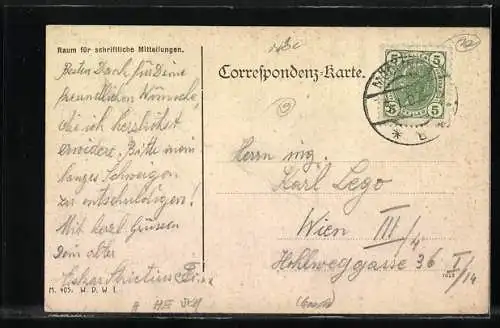 Raum für schriftliche Mitteilungen.
Besten Dank für Deine
freundlichen Wünsche,
die ich herzlichst
erwidere. Bitte mein
langes Schweigen
zu entschuldigen!
Mit herzl. Grüssen
Dein alter
Oskar
M. 405. W. P. W. I.
Correspondenz-Karte.
5 5
5 5
Herrn ing.
Karl Lego
Wien III/4
Hohlweggasse 36 I/14